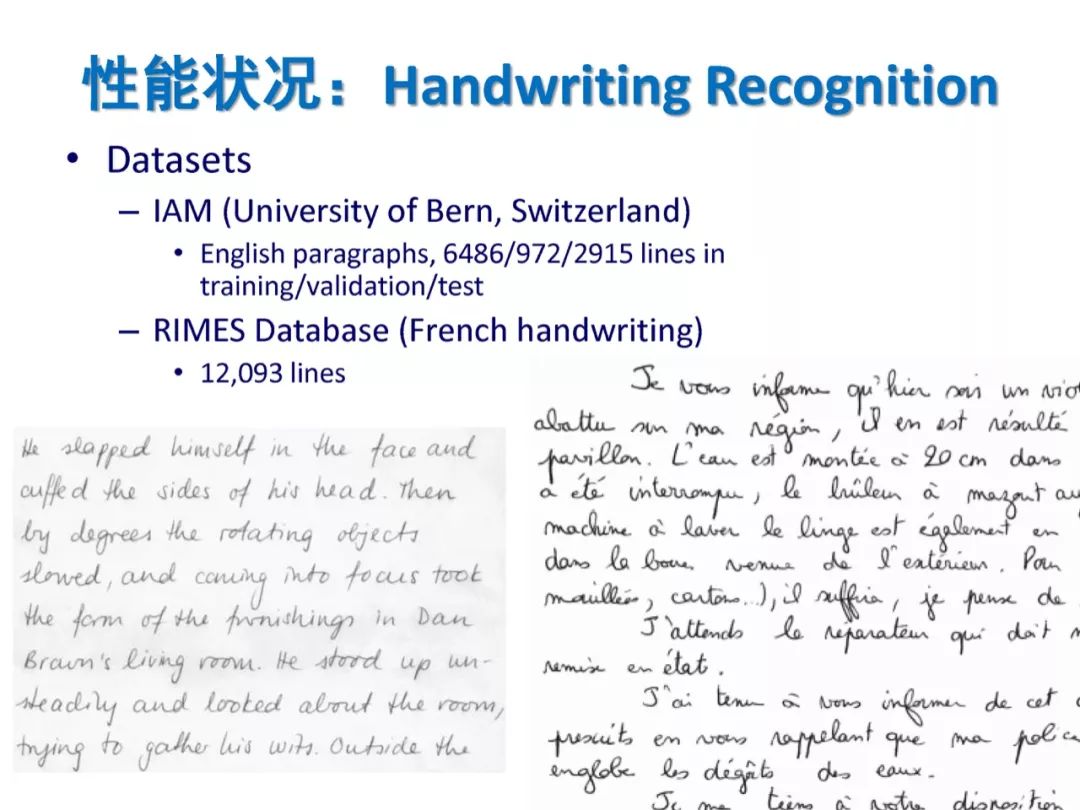 性能状况：Handwriting Recognition
• Datasets
– IAM (University of Bern, Switzerland)
• English paragraphs, 6486/972/2915 lines in
training/validation/test
– RIMES Database (French handwriting)
• 12,093 lines
He slapped himself in the face and
cuffed the sides of his head. Then
by degrees the rotating objects
slowed, and coming into focus took
the form of the furnishings in Dan
Brawn's living room. He stood up un-
steadily and looked about the room,
trying to gather his wits. Outside the
Je vous informe qu'hier soir un
abattu sur ma région, il en est résulté
pavillon. L'eau est montée à 20 cm dans
a été interrompu, le brûleur à mazout
machine à laver le linge est également en
dans la boue venue de l'extérieur. Pour
mouillées, cartons...), il suffira, je pense de
J'attends le réparateur qui doit
remise en état.
J'ai tenu à vous informer de cet
presuits en vous rappelant que ma police
englobe les dégâts des eaux.
Je me tiens à votre disposition